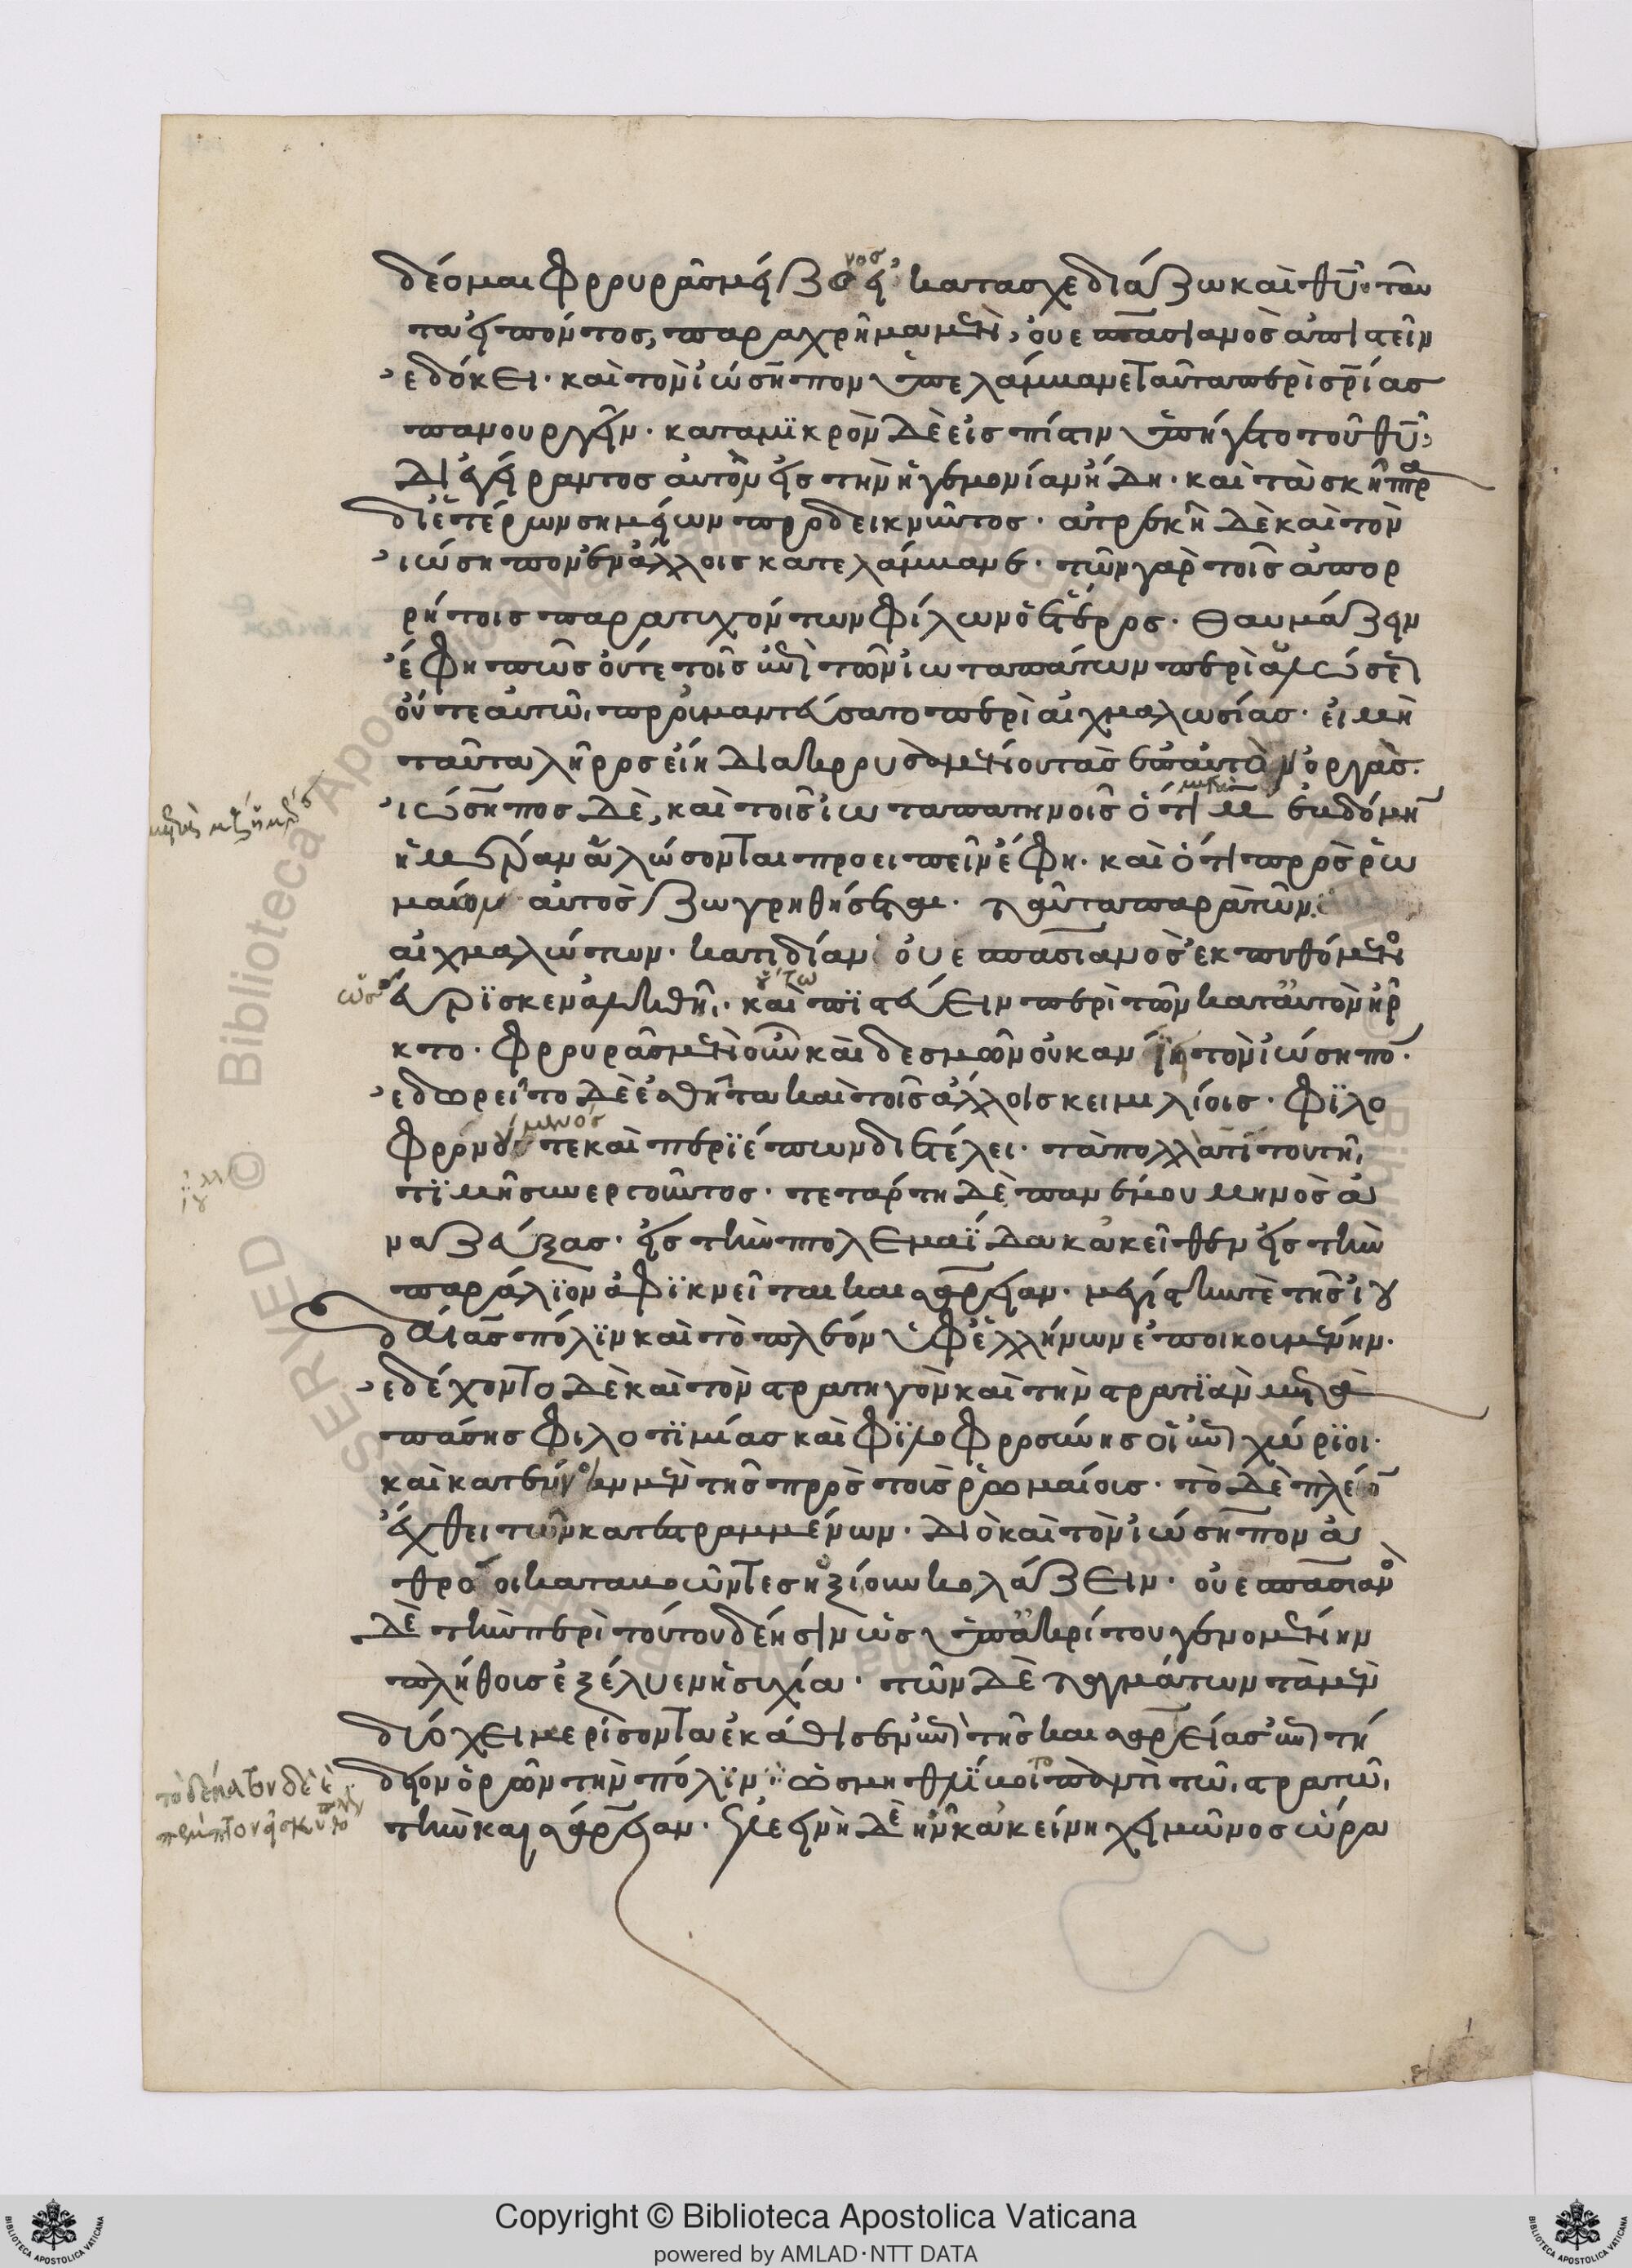 δέομαι φρουρᾶς μείζονος εἰ κατασχεδιάζω καὶ θυ̅· ταυ
τα εἰπόντος, παραχρῆμα μὲν, οὐεσπασιανὸς ἀπιστεῖν
ἐδόκει· καὶ τὸν ἰώσηπον ὑπελάμβανε ταῦτα περὶ σρ̅ίας
πανουργεῖν· κατα μϊκρὸν δὲ εἰς πίστιν ὑπήγετο τοῦ θυ̅,
διεγείραντος αὐτὸν εἰς τὴν ἡγεμονίαν ἤδη· καὶ τὰ σκῆπτρα
δι ἑτέρων σημείων προδεικνῦντος· ἀτρεκῆ δὲ καὶ τὸν
ἰώσηπον ἐν ἄλλοις κατελάμβανε· τῶν γὰρ τοῖς ἀπορ
ρήτοις παρατυχόντων φίλων ὁ ἕτερος· θαυμάζειν
ἔφη πῶς οὔτε τοῖς ἐπὶ τῶν ἰωταπάτων περὶ ἁλώσεως
οὔτε αὑτῶ, προὐμαντεύσατο περὶ αἰχμαλωσίας· εἰ μὴ
ταῦτα λῆρος εἴη διακρουομένου τὰς ἐπ αὐτὸν ὀργάς.
ἰώσηπος δὲ, καὶ τοῖς ἰωταπατηνοῖς ὅτι μ ἑβδόμην
ἡμέραν ἁλώσονται προειπεῖν ἔφη· καὶ ὅτι πρὸς ῥω
μαίων αὐτὸς ζωγρηθήσεται· ταῦτα παρὰ τῶν
αἰχμαλώτων· κατιδίαν οὐεσπασιανὸς ἐκπυθόμενος
ὡς εὕρϊσκεν ἀληθῆ,· οὕτω καὶ πϊστεύειν περὶ τῶν κατ αὐτὸν ἦρ
κτο· φρουρᾶς μὲν οὖν καὶ δεσμῶν οὐκ ανίη τὸν ἰώσηπον·
ἐδωρεῖτο δὲ ἐσθῆτα καὶ τοῖς ἄλλοις κειμηλίοις· φϊλο
φρονούμενός τε καὶ περϊέπων διετέλει· τὰ πολλὰ τίτου τῆ,
τϊμῆ συνεργοῦντος· τετάρτη δὲ πανέμου μηνὸς ἀ
ναζεύξας· εἰς τὴν πτολεμαΐδα κἀκεῖθεν εἰς τὴν
παράλϊον ἀφϊκνεῖται καισάρειαν· μεγίστην τὲ τῆς ἰου
δαίας πόλϊν καὶ τὸ πλέον ὑφ ἑλλήνων ἐποικουμένην·
ἐδέχοντο δὲ καὶ τὸν στρατηγὸν καὶ τὴν στρατϊὰν μετὰ
πάσης φιλοτϊμίας καὶ φϊλοφροσύνης οἱ ἐπιχώρϊοι·
καὶ κατεύνοιαν μὲν τῆς πρὸς τοῖς ῥωμαίοις· τὸ δὲ πλέον
ἔχθει τῶν κατεστραμμένων· διὸ καὶ τὸν ἰώσηπον ἀ
θρόοι καταβοῶντες ἠξίουν κολάζειν· οὐεσπασιανὸς
δὲ τὴν περὶ τούτου δέησιν ὡς ὑπ ἀκρίτου γενομένην
πλήθους ἐξέλυεν ἡσυχία· τῶν δὲ ταγμάτων τὰ μὲν
δύο χειμερίσοντα ἐκάθισεν ἐπὶ τῆς καισαρείας ἐπιτή
δειον ὁρῶν τὴν πόλϊν·
τὴν καισάρειαν· ἀλεεινὴ δὲ ἦν κἀκείνη χειμῶνος ὥρα